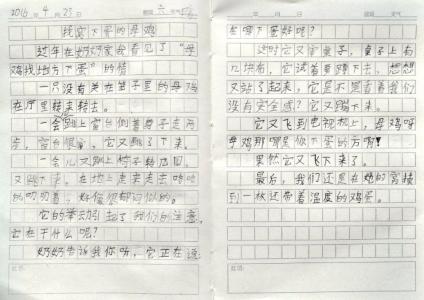 2016 年 4 月 23 日 星期 六 天气
找窝下蛋的母鸡
过年在奶奶家我看见了“母
鸡找地方下蛋”的情
一只没有关在笼子里的母鸡
在厅里转来转去。
一会跳上窗台侧着身子走两
步，窗台很窄，它又跳了下来。
一会儿又跳上椅子转几回，
又跳下来。在地上走来走去咕咕
的叨叨着，好像想都问似的。
它的举动引起了我们的注意，
它在干什么呢？
奶奶告诉我你听，它正在说
在哪下蛋好呢？
这时它又飞桌子，桌子上有
几块布，它试着要蹲下去，想想
又站了起来，它是不是看着我们
没有安全感？它又蹦下来。
它又飞到电视机上，母鸡呀
母鸡那哪是你下蛋的方啊！
果然它又飞下来了。
最后，我们还是在她的窝摸
到一枚还带着温度的鸡蛋。